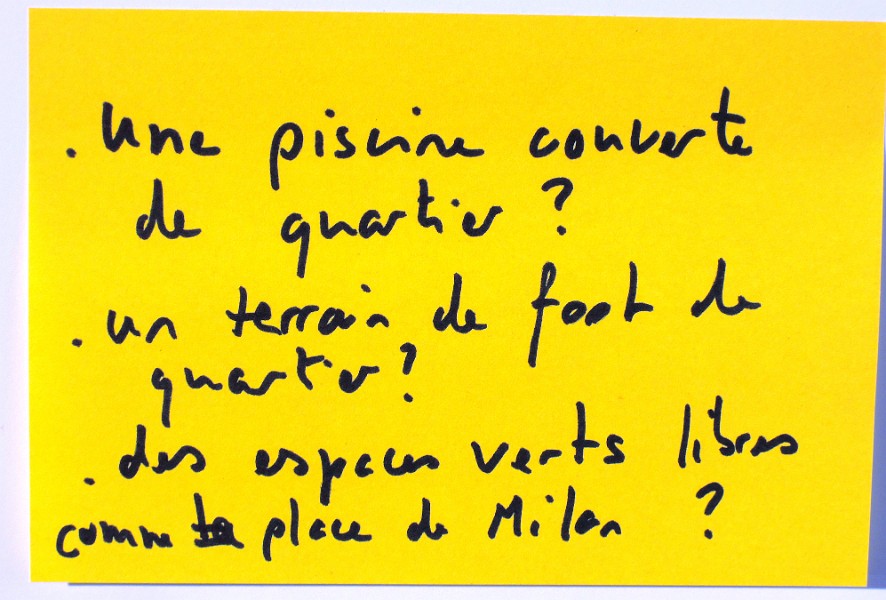 . Une piscine couverte
de quartier ?
. un terrain de foot de
quartier ?
. des espaces verts libres
comme place de Milan ?